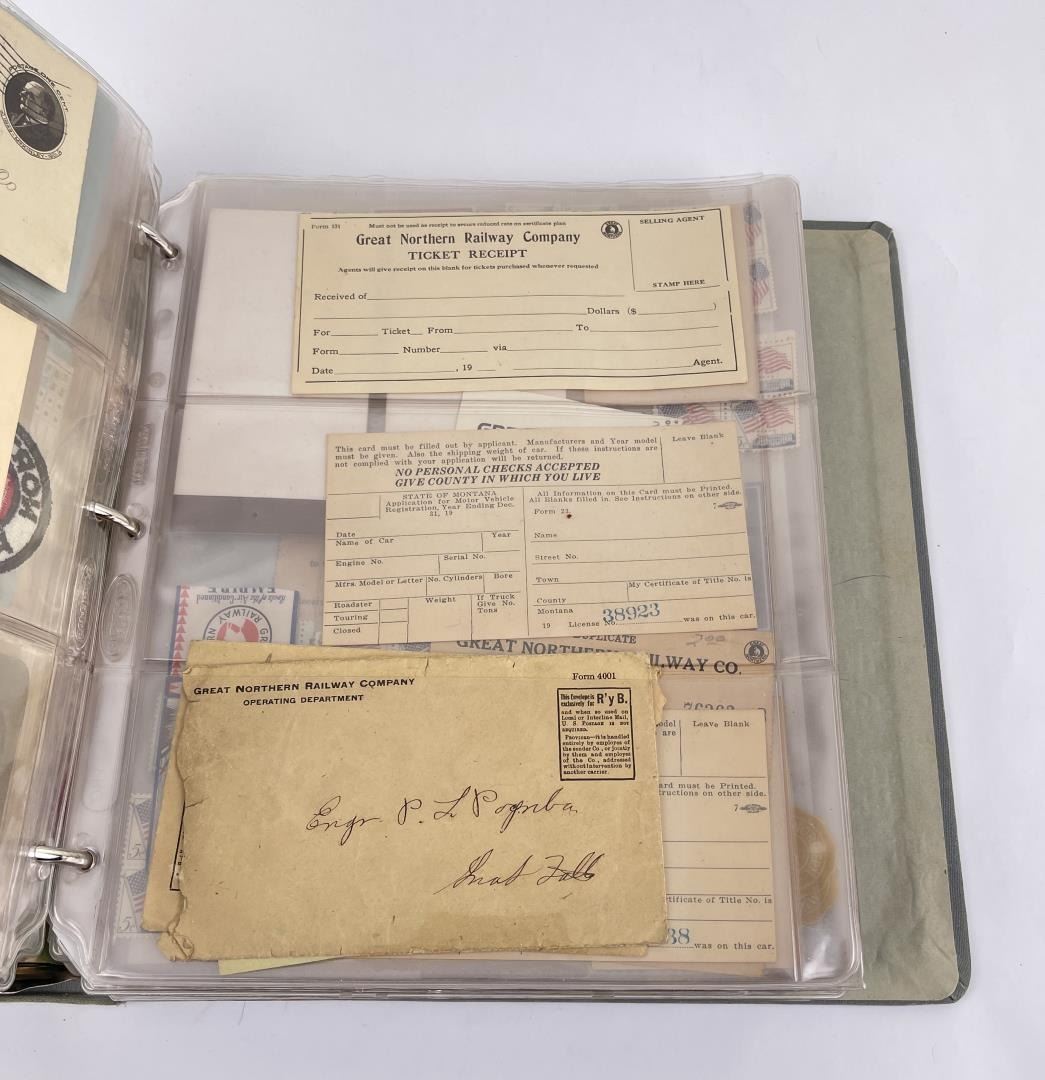 Form 131 Must not be used as receipt to secure reduced rate on certificate plan
Great Northern Railway Company
TICKET RECEIPT
Agents will give receipt on this blank for tickets purchased whenever requested
SELLING AGENT
STAMP HERE
Received of
Dollars ($ )
For Ticket From To
Form Number via
Date , 19 Agent.
This card must be filled out by applicant. Manufacturers and Year model
must be given. Also the shipping weight of car. If these instructions are
not complied with your application will be returned.
NO PERSONAL CHECKS ACCEPTED
GIVE COUNTY IN WHICH YOU LIVE
Leave Blank
STATE OF MONTANA
Application for Motor Vehicle
Registration, Year Ending Dec.
31, 19
Date Year
Name of Car
Engine No. Serial No.
Mfrs. Model or Letter No. Cylinders Bore
Roadster Weight If Truck
Give No.
Tons
Touring
Closed
All Information on this Card must be Printed.
All Blanks filled in. See Instructions on other side.
Form 23. 7
Name
Street No.
Town
My Certificate of Title No. is
County
Montana
19 License No. 38923 was on this car.
EMPIRE
RAILWAY
GREAT NORTHERN RAILWAY CO.
GREAT NORTHERN RAILWAY COMPANY
OPERATING DEPARTMENT
Form 4001
This Envelope is
exclusively for R'y B.
and when so used on
Local or Interline Mail,
U. S. POSTAGE IS NOT
REQUIRED.
PROVIDED—it is handled
entirely by employes of
the sender Co., or jointly
by them and employes
of the Co., addressed
without intervention by
another carrier.
Engr. P. L.
Great Falls
odel Leave Blank
are
ard must be Printed.
tructions on other side.
7
rtificate of Title No. is
38 was on this car.